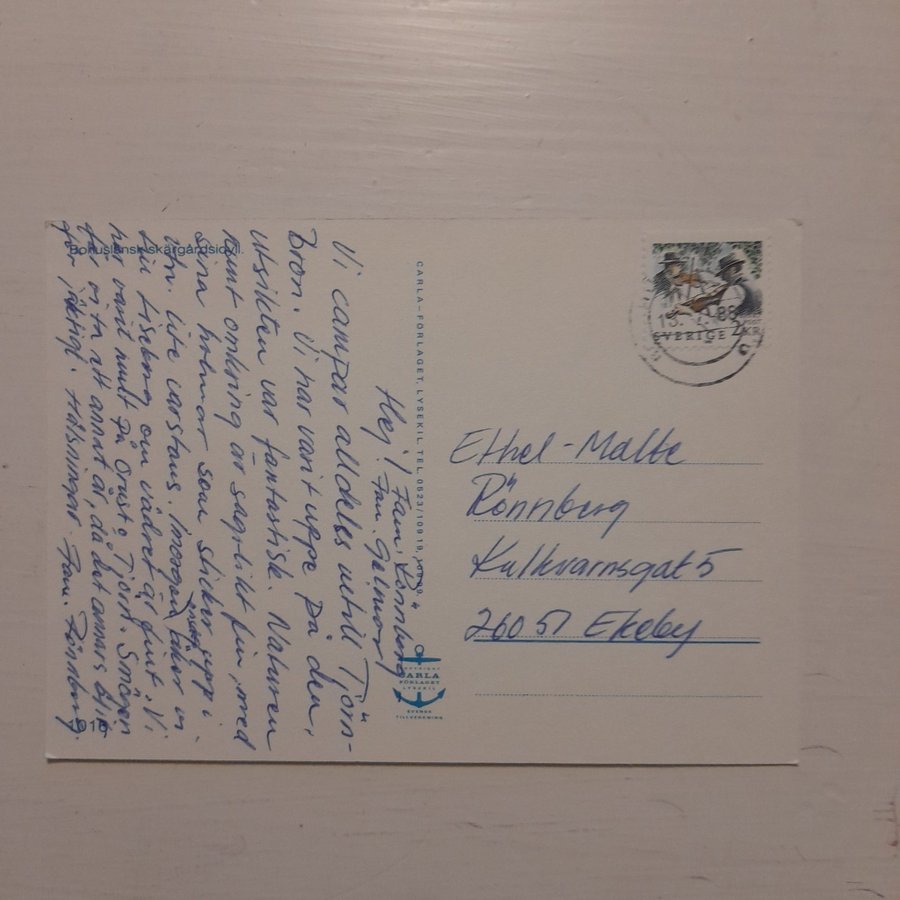 Bohuslänsk skärgårdsidyll.
Hej! Fam. Rönnberg
Fam.
Vi campar alldeles intill Tjörn-
bron. Vi har varit uppe på den,
utsikten var fantastisk. Naturen
runt omkring är sagolikt fin, med
sina holmar som sticker upp i
lite varstans. Imorgon åker vi
till Liseberg om vädret är fint. Vi
har varit runt på Orust o Tjörn. Smögen
får vi ta ett annat år, då det annars blir
för jäktigt. Hälsningar Fam. Rönnberg.
CARLA-FÖRLAGET, LYSEKIL TEL. 0523/10919,
COPYRIGHT
CARLA
FÖRLAGET
LYSEKIL
SVENSK
TILLVERKNING
88
2 KR
SVERIGE
Ethel-Malte
Rönnberg
Kulkvarnsgat 5
260 51 Ekeby